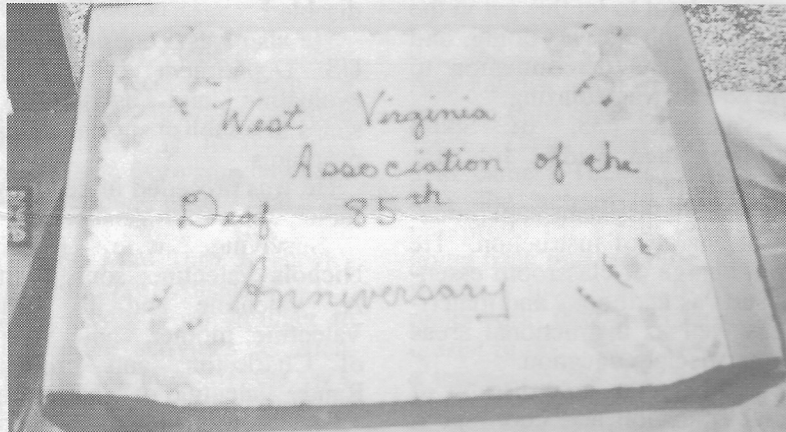 West Virginia
Association of the
Deaf 85th
Anniversary